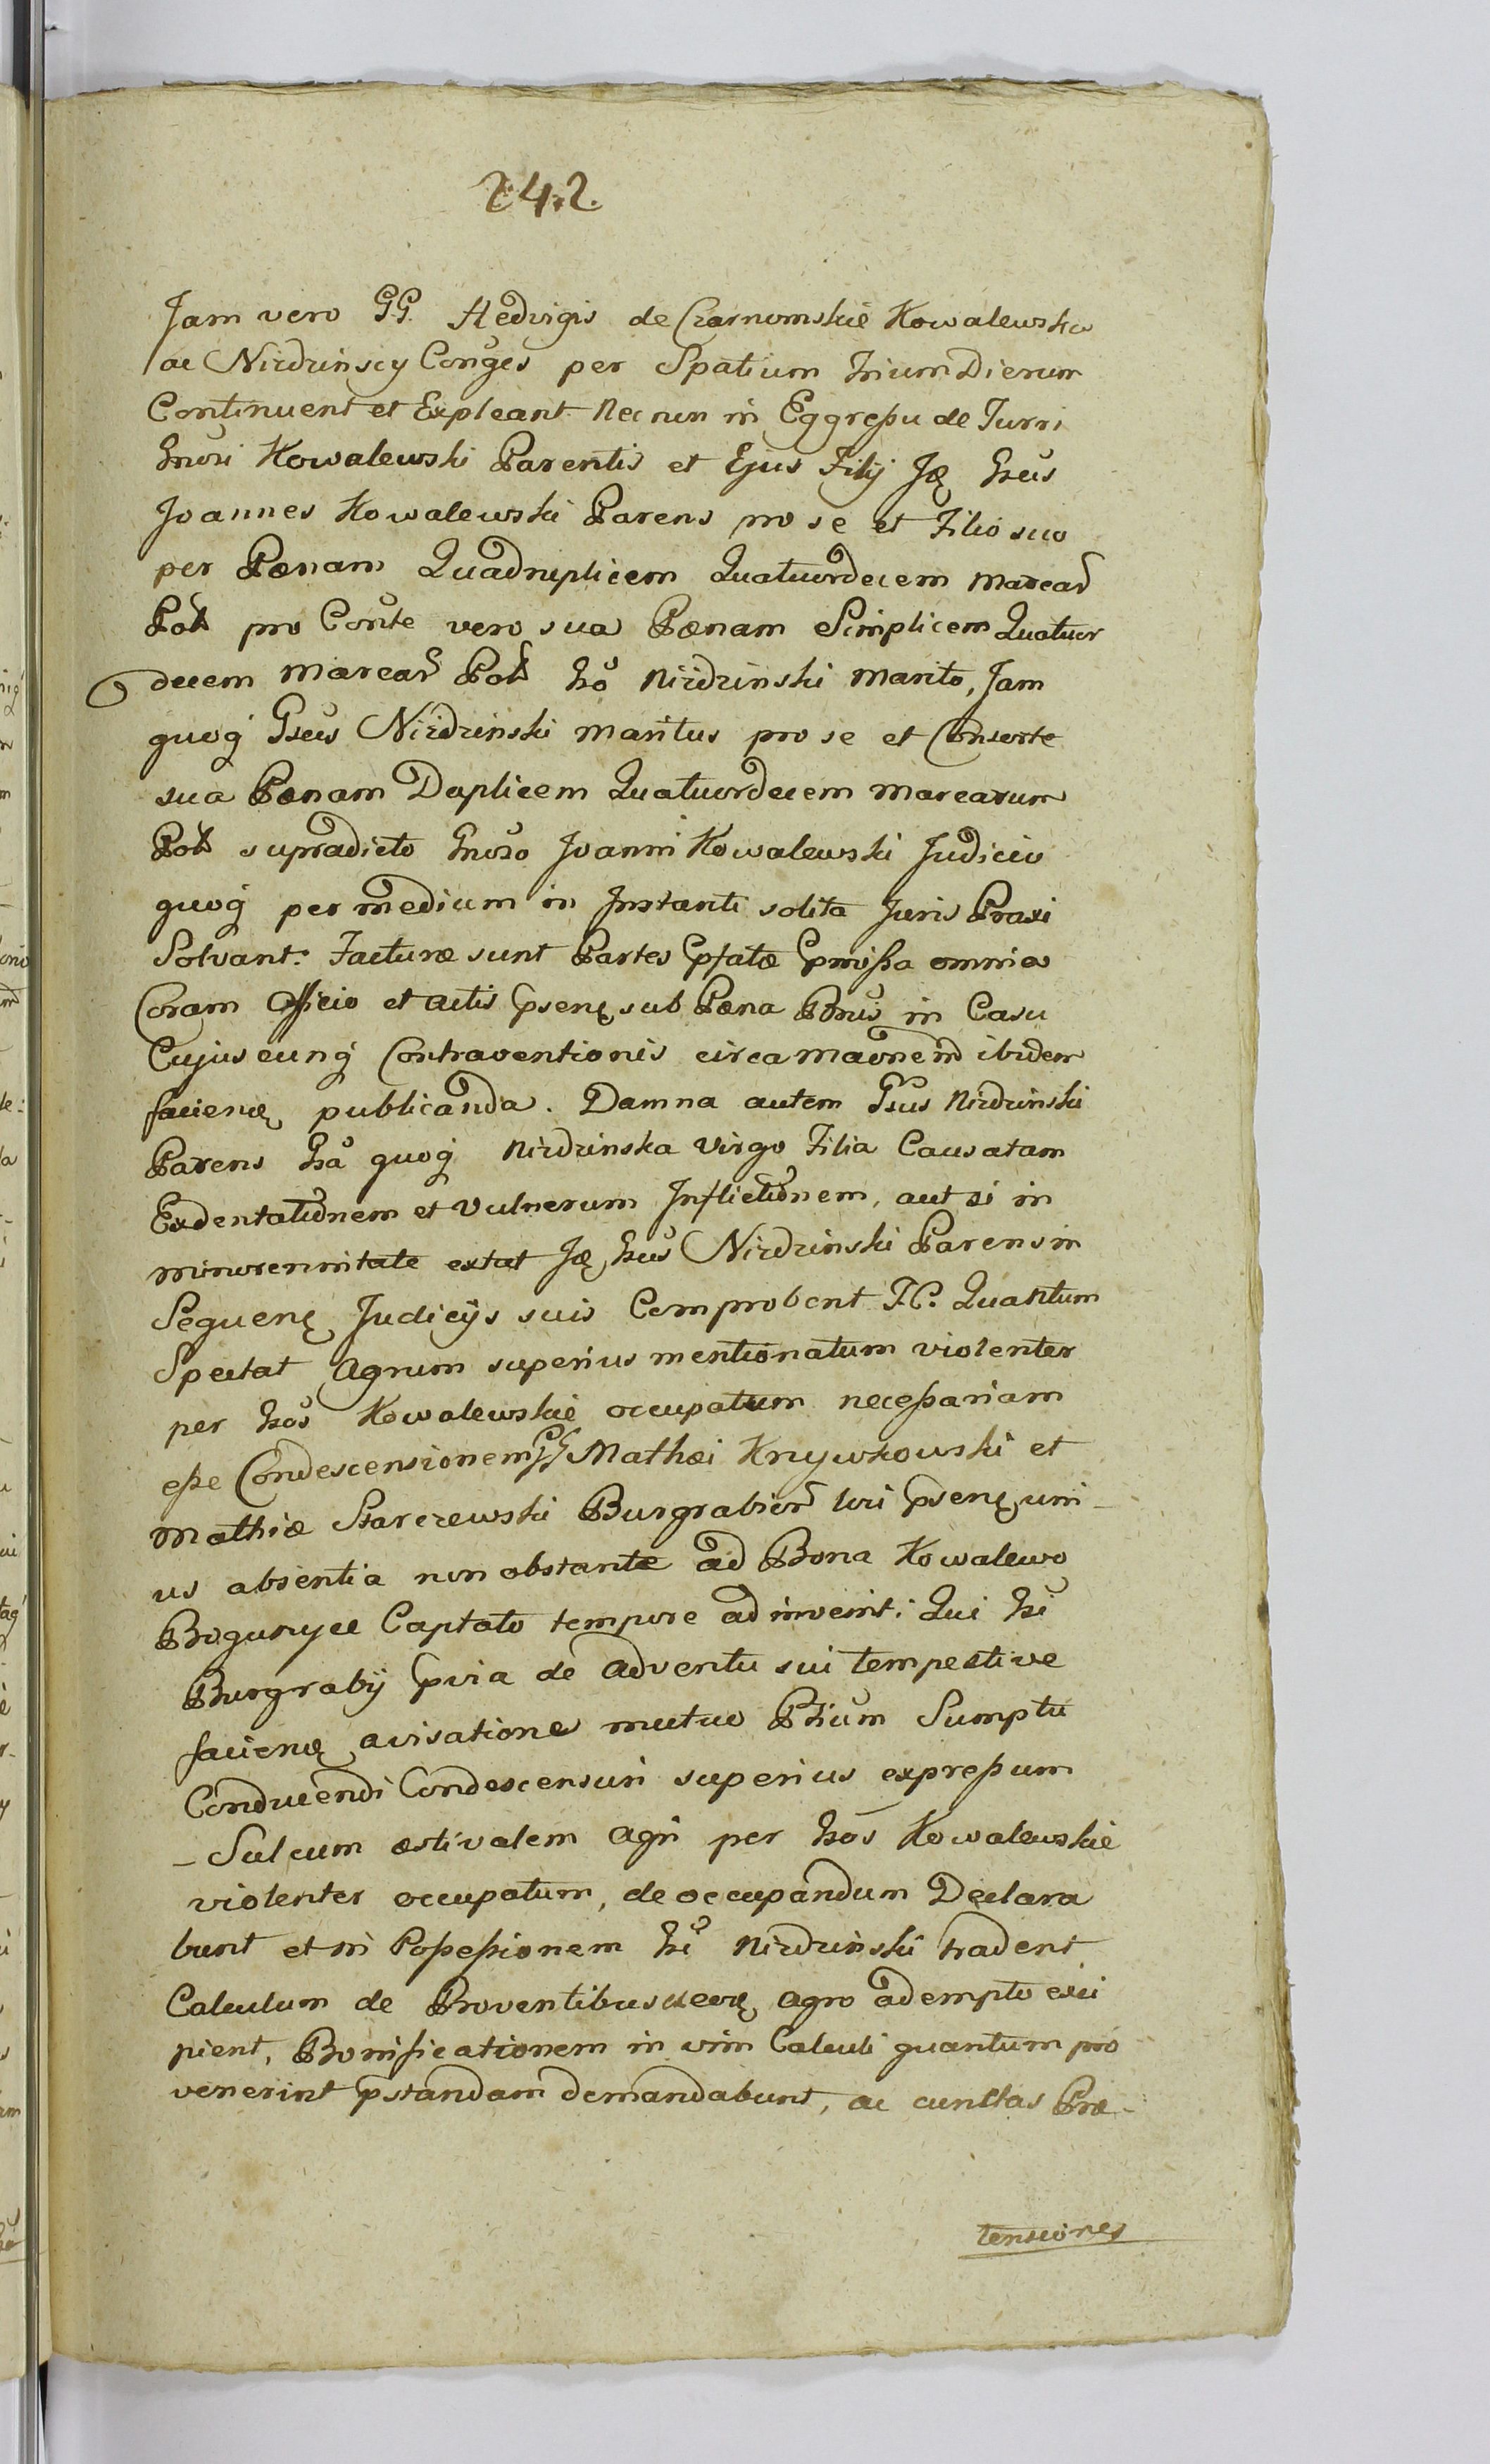 242.
Jam vero GG. Hedvigis de Czarnomskie Kowalewska
ac Nirdzinscy Conges per Spatium trium Dierum
Continuent et Expleant. Nec non in Eggreßu de Turri
Gnosi Kowalewski Parentis et Ejus Filij Ię Gsus
Joannes Kowalewski Parens pro se et Filio suo
per Pœnam Quadruplicem Quatuordecem Marcar
Pol pro Conte vero sua Pœnam Simplicem Quatuor
decem Marcar Pol Gso Nirdzinski Marito, Jam
quoq Gsus Nirdzinski Maritus pro se et Consorte
sua Pœnam Duplicem Quatuordecem Marcarum
Pol supradicto Gnoso Joanni Kowalewski Judicio
quoq per medium in Instanti solita Juris Praxi
Solvant. Facturæ sunt Partes Pfatæ Pmißa omnia
Coram Officio et actis Psenę sub Pæna Bnis in Casu
Cujuscunq Contraventionis circa Maonem ibidem
facienę publicanda. Damna autem Gsus Nirdzinski
Parens Gsa quoq Nirdzinska Virgo Filia Causatam
Exdentationem et Vulnerum Inflictionem, aut si in
minorennitate extat Ię Gsus Nirdzinski Parens in
Sequenę Judicijs suis Comprobent FC. Quantum
Spectat Agrum superius mentionatum violenter
per Gsos Kowalewskie occupatum neceßariam
eße Condescensionem GG Mathæi Krzywkowski et
Mathiæ Starczewski Burgrabior loci Psenę uni-
us absentia non obstante ad Bona Kowalewo
Boguszyce Captato tempore adinvenit: Qui Gsi
Burgrabij Pvia de adventu sui tempestive
facienę avisatione mutuo Ptium Sumptu
Conducendi Condescensuri superius expreßum
- Sulcum æstivalem agri per Gsos Kowalewskie
violenter occupatum, deoccupandum Declara
bunt et in Poßeßionem Gsi Nirdzinski tradent
Calculum de Proventibus agro adempto exci
pient, Bonificationem in vim Calculi quantum pro
venerint Pstandam demandabunt, ac cunctas Præ-
tensiones